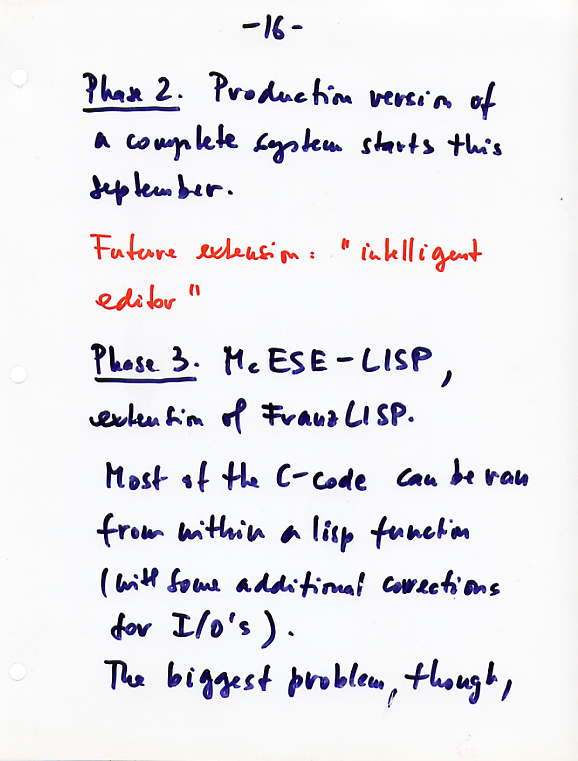 -16-
Phase 2. Production version of
a complete system starts this
september.
Future extension: "intelligent
editor"
Phase 3. McESE-LISP,
extension of Franz LISP.
Most of the C-code can be ran
from within a lisp function
(with some additional corrections
for I/O's).
The biggest problem, though,